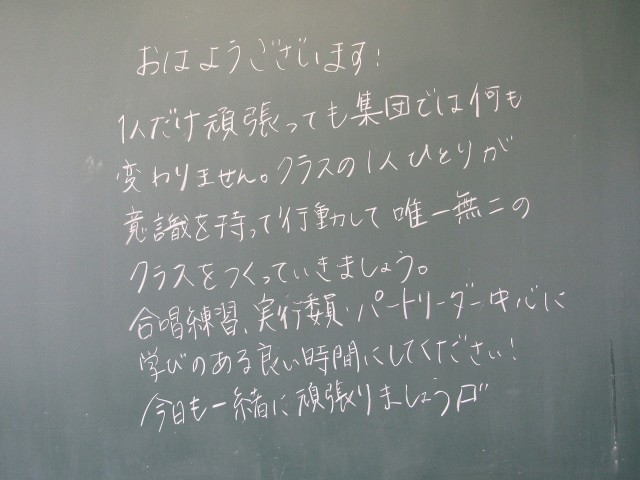 おはようございます!
1人だけ頑張っても集団では何も
変わりません。クラスの1人ひとりが
意識を持って行動して唯一無二の
クラスをつくっていきましょう。
合唱練習、実行委員・パートリーダー中心に
学びのある良い時間にしてください!
今日も一緒に頑張りましょう